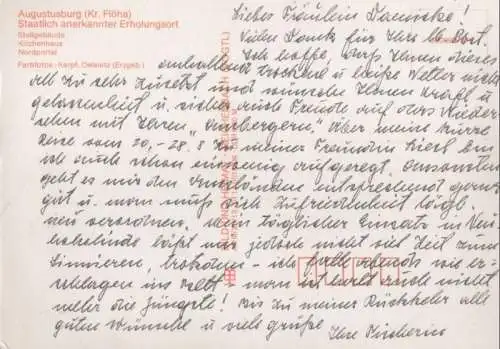 Augustusburg (Kr. Flöha)
Staatlich anerkannter Erholungsort
Stallgebäude
Kirchenhaus
Nordportal
Farbfotos: Karpf, Oelsnitz (Erzgeb.)
Liebes Fräulein
Vielen Dank für Ihre
Ich hoffe, daß Ihnen dieses
anhaltend trockene u heiße Wetter nicht
all zu sehr zusetzt und wünsche Ihnen Kraft u
Gelassenheit u. sicher auch Freude auf das Wieder-
sehen mit Ihren „ Über meine kurze
Reise vom 20.-28.8 zu meiner Freundin bin
ich auch schon freudig aufgeregt. Ansonsten
geht es mir den Umständen entsprechend ganz
gut u. man muß sich Zufriedenheit tägl.
neu verordnen. Mein täglicher Einsatz in
läßt mir jedoch nicht viel Zeit zum
Sinnieren, trotzdem - ich falle abends wie er-
schlagen ins Bett - man ist halt auch nicht
mehr die Jüngste! Bis zu meiner Rückkehr alle
guten Wünsche u viele Grüße
Ihre